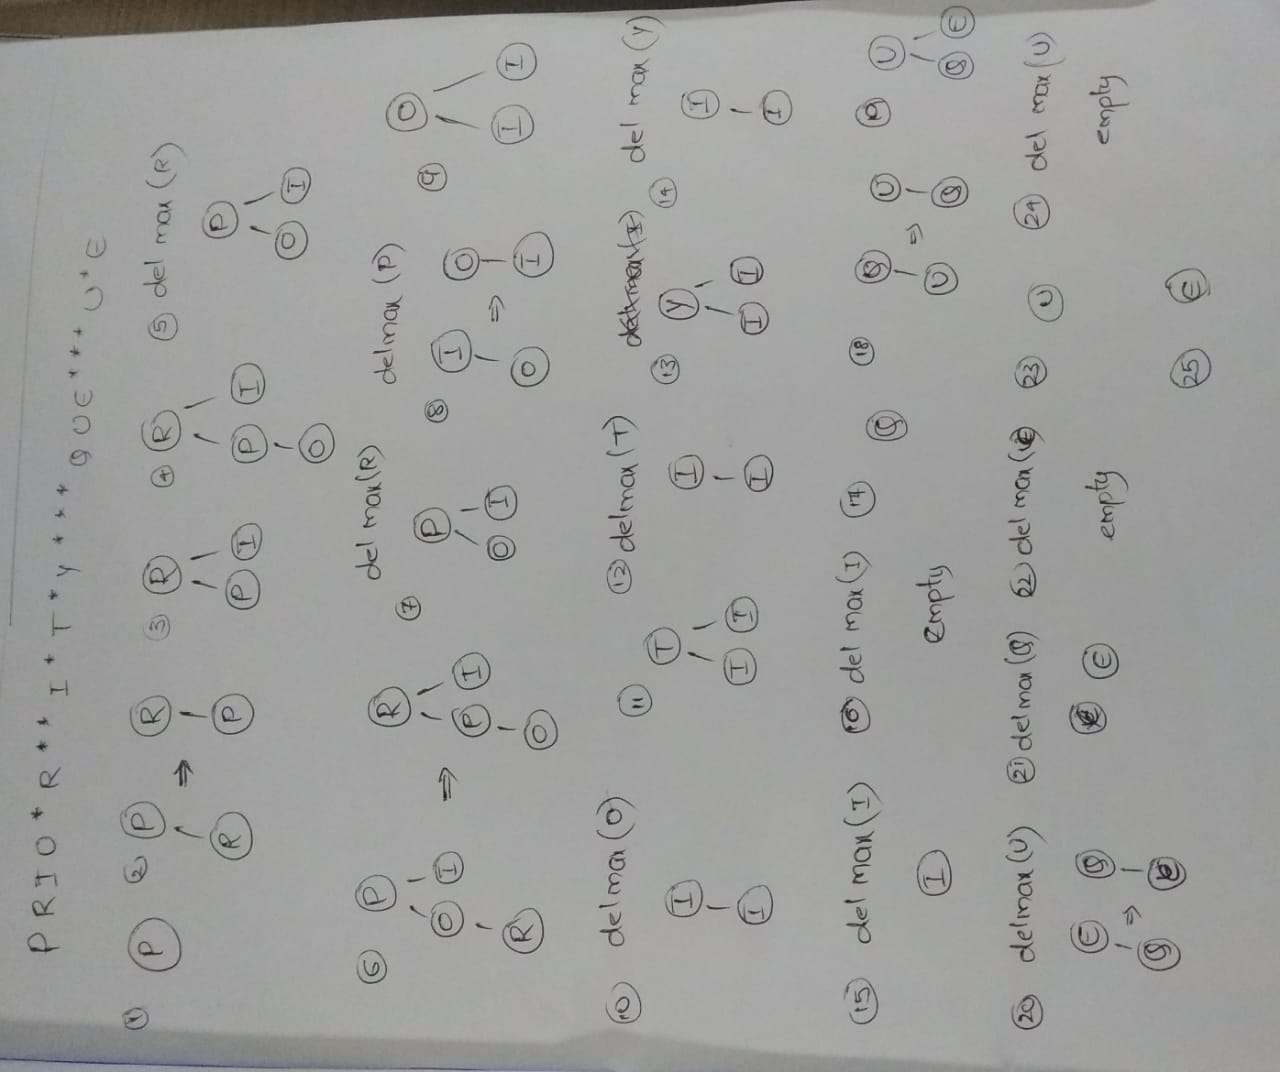 P R I O * R * * I * T * Y * * * Q U E * * * U * E
① P ② P R ⇒ R P ③ R P I ④ R P I O ⑤ del max (R) P O I
⑥ P O I R ⇒ R P I O ⑦ del max(R) P O I ⑧ delmax (P) I O ⇒ O I ⑨ O I I
⑩ delmax (O) I I ⑪ T I I ⑫ delmax (T) I I ⑬ Y I I ⑭ del max (Y) I I
⑮ del max (I) I ⑯ del max (I) empty ⑰ Q ⑱ Q U ⇒ U Q ⑲ U Q E
⑳ delmax (U) E Q ⇒ Q E ㉑ delmax (Q) E ㉒ del max (E) empty ㉓ U ㉔ del max (U) empty
㉕ E